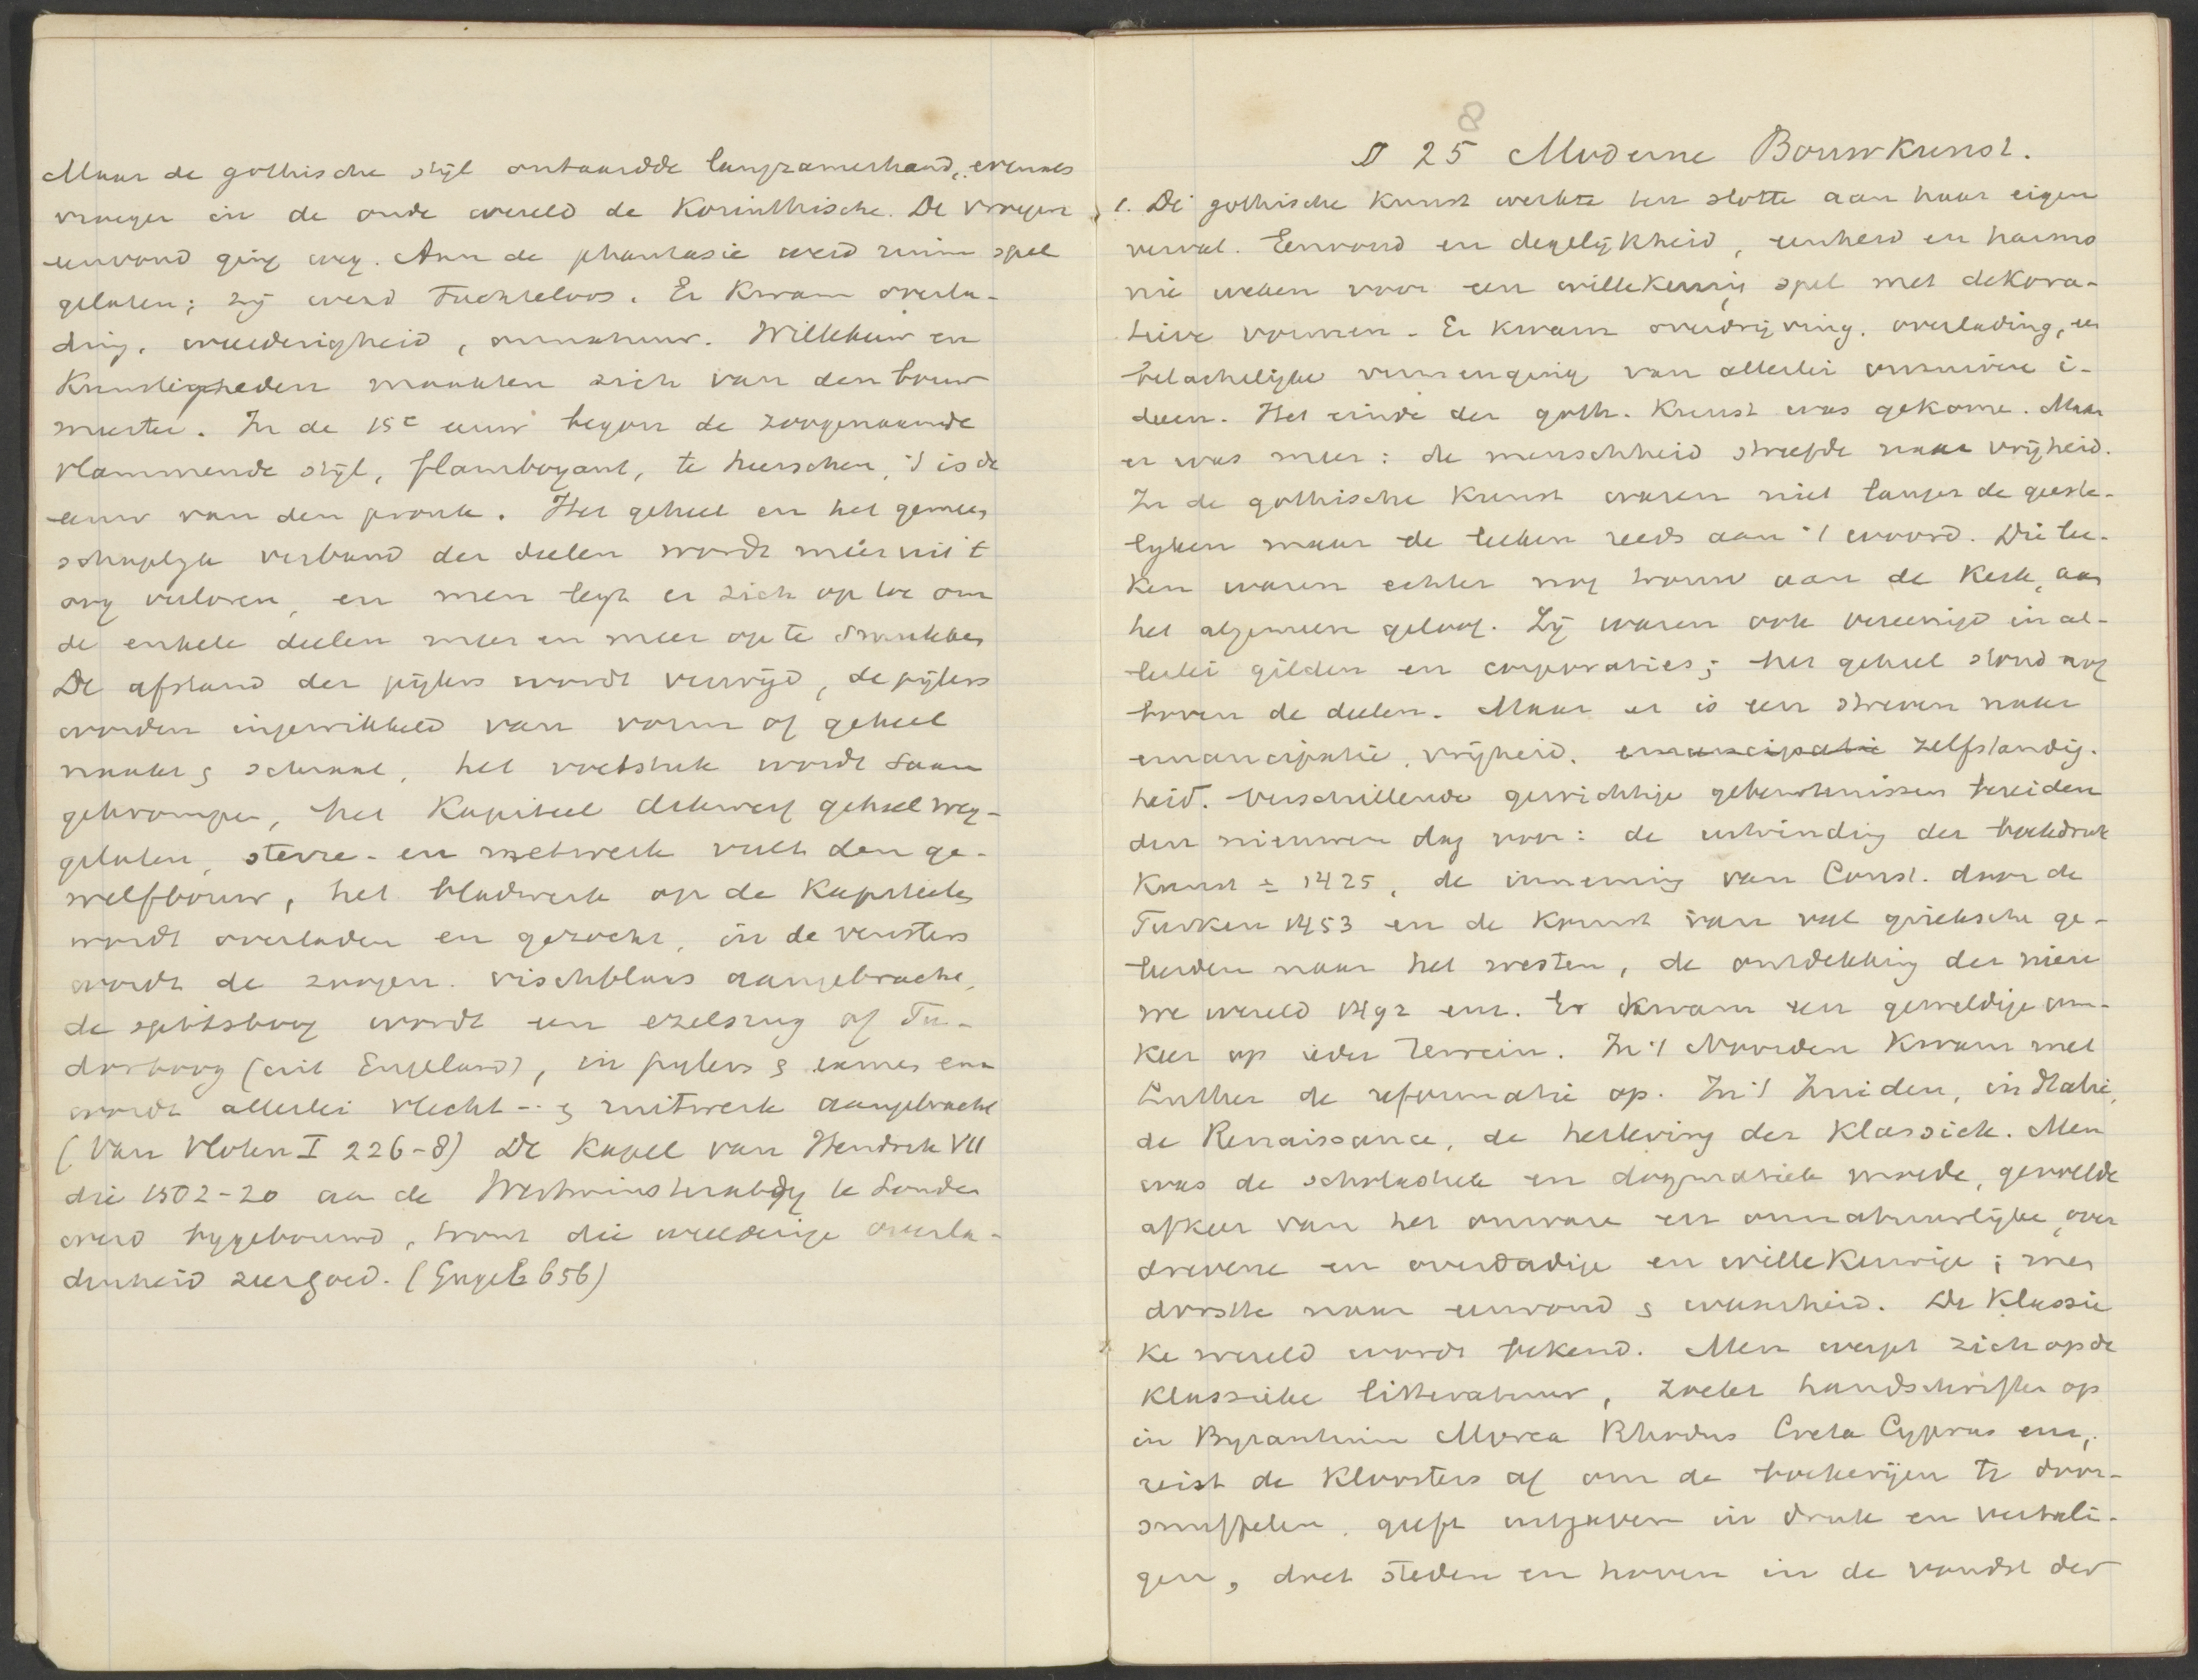 Maar de gothische stijl ontaardde langzamerhand, evenals
vroeger in de oude wereld de Korinthische. De vroegere
eenvoud ging weg. Aan de phantasie werd ruim spel
gelaten; zij werd tuchteloos. Er kwam overla-
ding, weelderigheid, onnatuur. Willekeur en
Kunstigheden maakten zich van den bouw
meester. In de 15e eeuw begon de zoogenaamde
vlammende stijl, flamboyant, te heerschen, 't is de
eeuw van den pronk. Het geheel en het gemeen
schaplijk verband der deelen wordt meer uit 't
oog verloren, en men legt er zich op toe om
de enkele deelen meer en meer op te smukken
De afstand der pijlers wordt verwijd, de pijlers
worden ingewikkeld van vorm of geheel
naakt & schraal, het voetstuk wordt saam
gekrompen, het Kapiteel dikwerf geheel weg-
gelaten, sterre- en netwerk vult den ge-
welfbouw, het bladwerk op de Kapiteelen
wordt overladen en gezocht, in de vensters
wordt de zoogen. vischblaas aangebracht,
de spitsboog wordt een ezelsrug of Tu-
dorboog (uit Engeland), in pijlers &
wordt allerlei vlecht- & ruitwerk aangebracht
(Van Vloten I 226-8) De Kapel van Hendrik VII
die 1502-20 aan de Westminsterabdy te Londen
werd bygebouwd, toont die weelderige overla-
denheid zeer goed. (Gugel 656)
§ 25 8 Moderne Bouwkunst.
1. De gothische Kunst werkte ten slotte aan haar eigen
verval. Eenvoud en degelijkheid, eenheid en harmo
nie weken voor een willekeurig spel met dekora-
tieve vormen. Er kwam overdrijving, overlading, een
belachelijke vermenging van allerlei onzuivere i-
deen. Het einde der goth. Kunst was gekome. Maar
er was meer: de menschheid streefde naar vrijheid.
In de gothische Kunst waren niet langer de geeste-
lyken maar de leeken reeds aan 't woord. Die lee-
ken waren echter nog trouw aan de Kerk, aan
het algemeen geloof. Zij waren ook vereenigd in al-
lerlei gilden en corporaties; het geheel stond nog
boven de deelen. Maar er is een streven naar
emancipatie, vrijheid, emancipatie zelfstandig-
heid. Verschillende gewichtige gebeurtenissen bereiden
den nieuwen dag voor: de uitvinding der boekdruk
Kunst ± 1425, de inneming van Const. door de
Turken 1453 en de komst van vele grieksche ge-
leerden naar het westen, de ontdekking der nieu
we wereld 1492 enz. Er kwam een geweldige om-
keer op ieder terrein. In 't Noorden Kwam met
Luther de reformatie op. In 't Zuiden, in Italie,
de Renaissance, de herleving der Klassiek. Men
was de scholastiek en dogmatiek moede, gevoelde
afkeer van het onware en onnatuurlijke, over
drevene en overdadige en willekeurige; men
dorstte naar eenvoud & waarheid. De Klassie
ke wereld wordt bekend. Men werpt zich op de
Klassieke litteratuur, zoekt handschriften op
in Byzantium Morea Rhodus Creta Cyprus enz,
reist de Kloosters af om de boekerijen te door-
snuffelen, geeft uitgaven in druk en vertali-
gen, doet steden en hoven in de vondst der